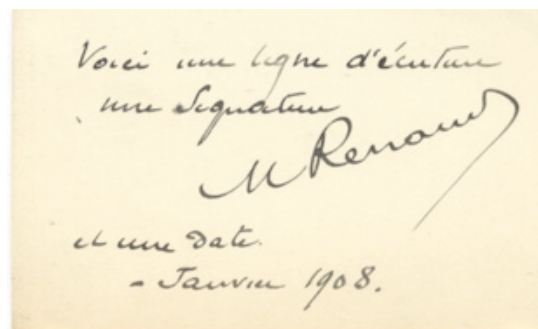 Voici une ligne d'écriture
une Signature
M Renaud
et une Date.
- Janvier 1908.